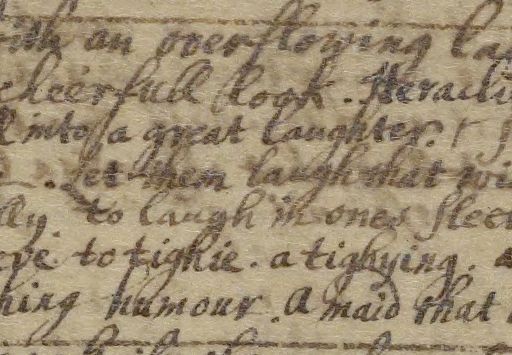 with an overflowing lau
cheerfull look. Heracli
into a great laughter.
let them laugh that wi
lly. to laugh in ones slee
to tighie. a tighying. a
hing humour. A maid that